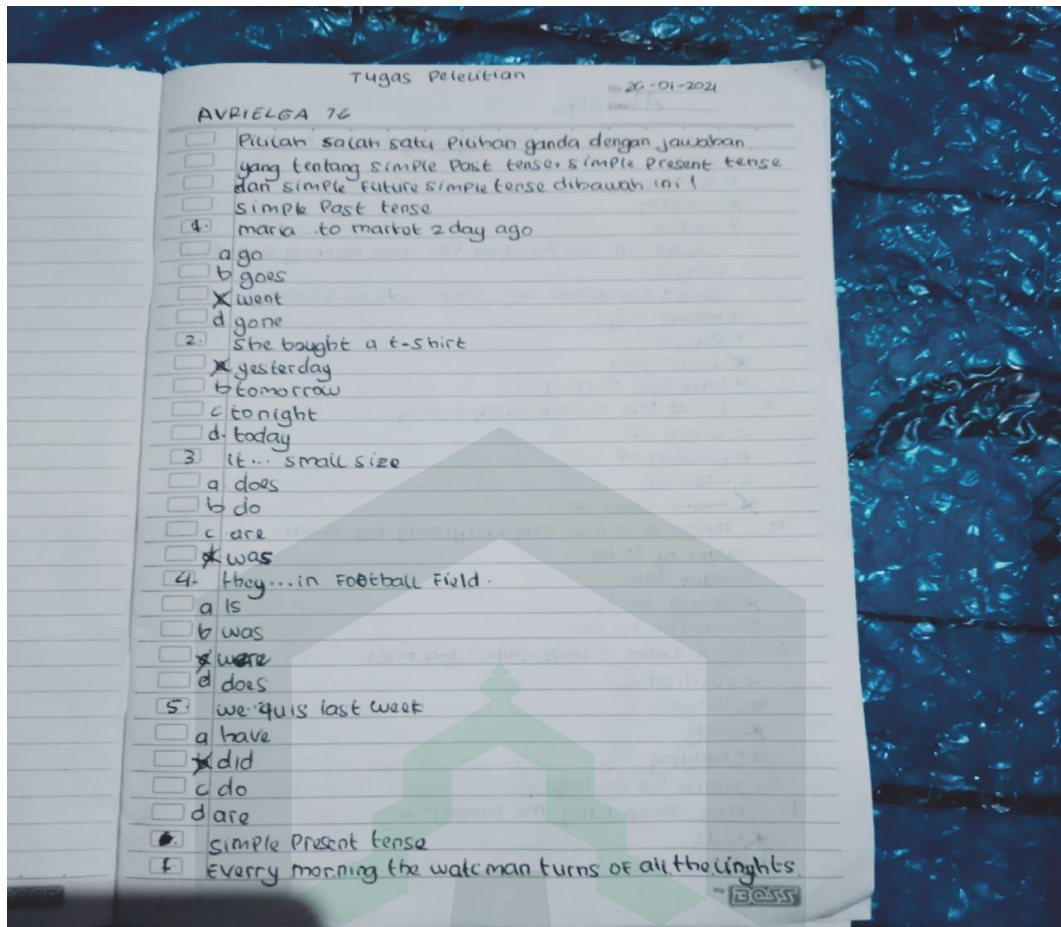 Tugas Peleutian
No 26-01-2021
AVRIELGA 76
Pilulah salah satu Pilihan ganda dengan jawaban
yang tentang simple Past tense, simple Present tense
dan simple Future simple tense dibawah ini!
simple Past tense
1. maria ... to market 2 day ago
a go
b goes
X went
d gone
2. She bought a t-shirt
X yesterday
b tomorrow
c tonight
d. today
3 it... small size
a does
b do
c are
X was
4. they...in Football Field.
a Is
b was
X were
d does
5. we..quis last week
a have
X did
c do
d are
simple Present tense
1. Everry morning the watcman turns of all the linghts.
My BOSS